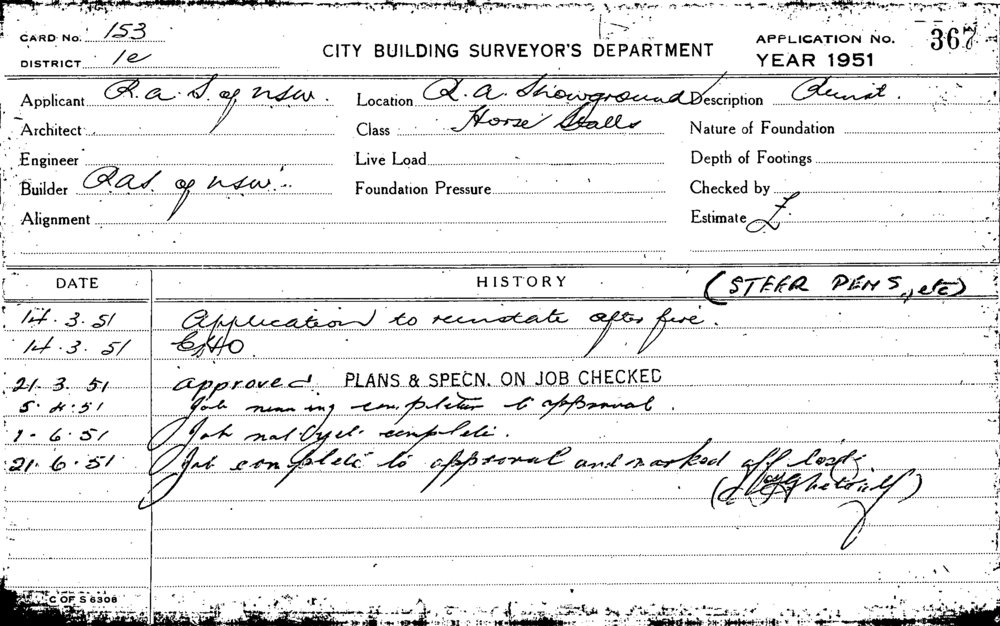 CARD No. 153
DISTRICT 1e
CITY BUILDING SURVEYOR'S DEPARTMENT
APPLICATION No. 367
YEAR 1951
Applicant R.A.S. of NSW. Location R.A. Showground Description Reinst.
Architect Class Horse Stalls Nature of Foundation
Engineer Live Load Depth of Footings
Builder RAS. of NSW. Foundation Pressure Checked by
Alignment Estimate £
DATE HISTORY (STEER PENS, etc)
14.3.51 Application to reinstate after fire.
14.3.51
21.3.51 approved PLANS & SPECN. ON JOB CHECKED
5.4.51 Job nearing completion to approval.
1-6.51 Job not yet complete.
21.6.51 Job complete to approval and marked off
C OF S 6308